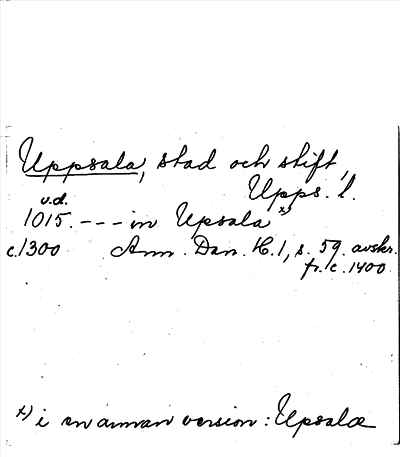 Uppsala, stad och stift,
Upps. l.
u.d.
1015. --- in Upsala x)
c.1300 Ann. Dan. H.1, s. 59. avskr.
fr. c. 1400
x) i en annan version: Upsalæ